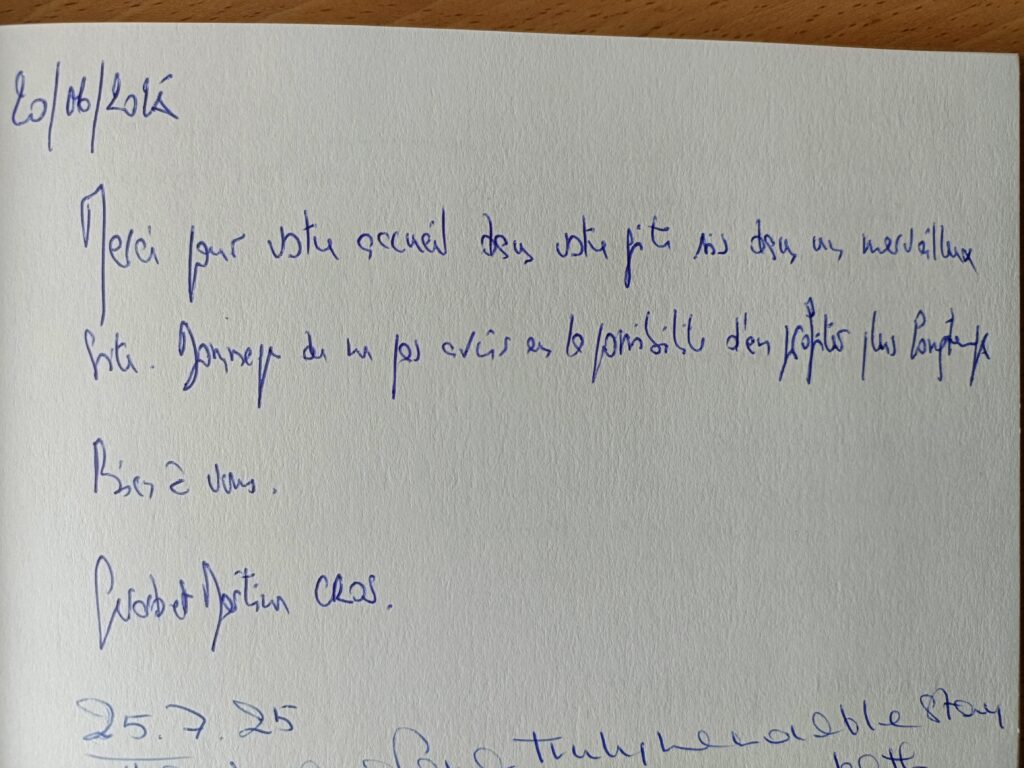 20/06/2025
Merci pour votre accueil dans votre gite sis dans un merveilleux
site. Dommage de ne pas avoir eu la possibilité d'en profiter plus longtemps
Bien à vous.
et Martine CROS.
25.7.25
truly memorable stay
both